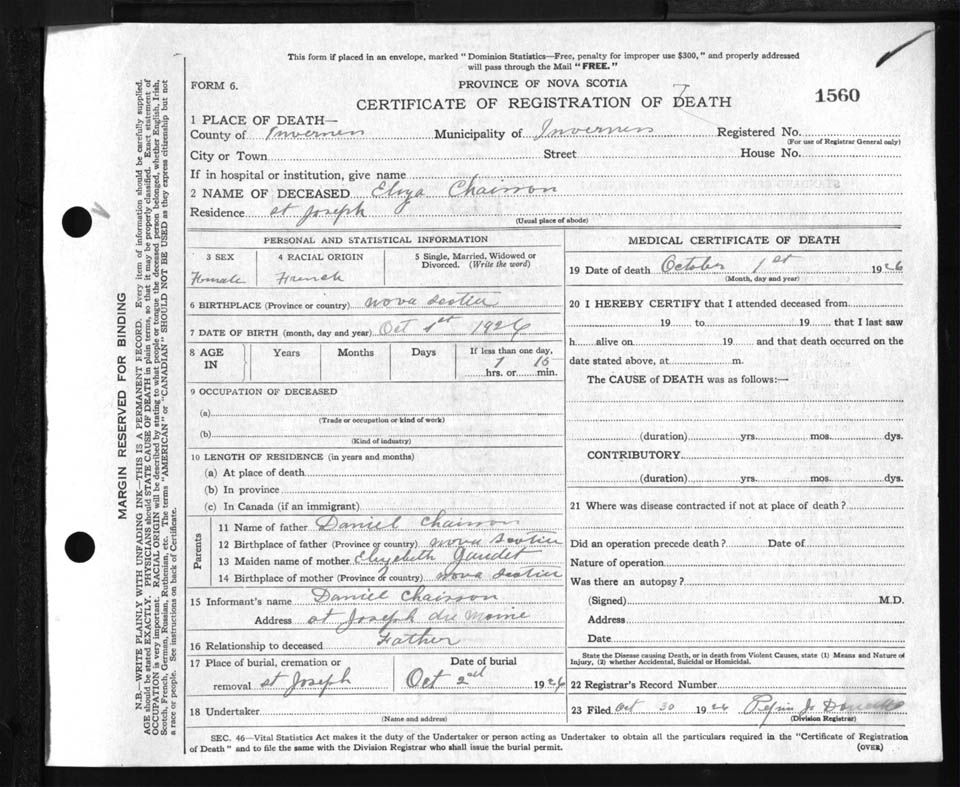 This form if placed in an envelope, marked "Dominion Statistics—Free, penalty for improper use $300," and properly addressed
will pass through the Mail "FREE."
FORM 6.
PROVINCE OF NOVA SCOTIA
CERTIFICATE OF REGISTRATION OF DEATH
1560
1 PLACE OF DEATH—
County of Inverness Municipality of Inverness Registered No.
(For use of Registrar General only)
City or Town Street House No.
If in hospital or institution, give name
2 NAME OF DECEASED Elyza Chaisson
Residence st Joseph
(Usual place of abode)
PERSONAL AND STATISTICAL INFORMATION
3 SEX 4 RACIAL ORIGIN 5 Single, Married, Widowed or
Divorced. (Write the word)
Female French
6 BIRTHPLACE (Province or country) nova scotia
7 DATE OF BIRTH (month, day and year) Oct 1st 1926
8 AGE IN Years Months Days If less than one day,
1 15
hrs. or min.
9 OCCUPATION OF DECEASED
(a)
(Trade or occupation or kind of work)
(b)
(Kind of industry)
10 LENGTH OF RESIDENCE (in years and months)
(a) At place of death
(b) In province
(c) In Canada (if an immigrant)
Parents
11 Name of father Daniel Chaisson
12 Birthplace of father (Province or country) nova scotia
13 Maiden name of mother Elizabeth Gaudet
14 Birthplace of mother (Province or country) nova scotia
15 Informant's name Daniel Chaisson
Address st Joseph du Moine
16 Relationship to deceased Father
17 Place of burial, cremation or Date of burial
removal st Joseph Oct 2nd 1926
18 Undertaker
(Name and address)
MEDICAL CERTIFICATE OF DEATH
19 Date of death October 1st 1926
(Month, day and year)
20 I HEREBY CERTIFY that I attended deceased from
19 to 19 that I last saw
h alive on 19 and that death occurred on the
date stated above, at m.
The CAUSE of DEATH was as follows:—
(duration) yrs. mos. dys.
CONTRIBUTORY
(duration) yrs. mos. dys.
21 Where was disease contracted if not at place of death?
Did an operation precede death? Date of
Nature of operation
Was there an autopsy?
(Signed) M.D.
Address
Date
State the Disease causing Death, or in death from Violent Causes, state (1) Means and Nature of
Injury, (2) whether Accidental, Suicidal or Homicidal.
22 Registrar's Record Number
23 Filed Oct 30 1926
(Division Registrar)
SEC. 46—Vital Statistics Act makes it the duty of the Undertaker or person acting as Undertaker to obtain all the particulars required in the "Certificate of Registration
of Death" and to file the same with the Division Registrar who shall issue the burial permit.
(OVER)
MARGIN RESERVED FOR BINDING
N.B.—WRITE PLAINLY WITH UNFADING INK—THIS IS A PERMANENT RECORD. Every item of information should be carefully supplied.
AGE should be stated EXACTLY. PHYSICIANS should STATE CAUSE OF DEATH in plain terms, so that it may be properly classified. Exact statement of
OCCUPATION is very important. RACIAL ORIGIN will be described by stating to what people or tongue the deceased person belonged, whether English, Irish,
Scotch, French, German, Russian, Ruthenian, etc. The terms "AMERICAN" or "CANADIAN" SHOULD NOT BE USED as they express citizenship but not
a race or people. See instructions on back of Certificate.